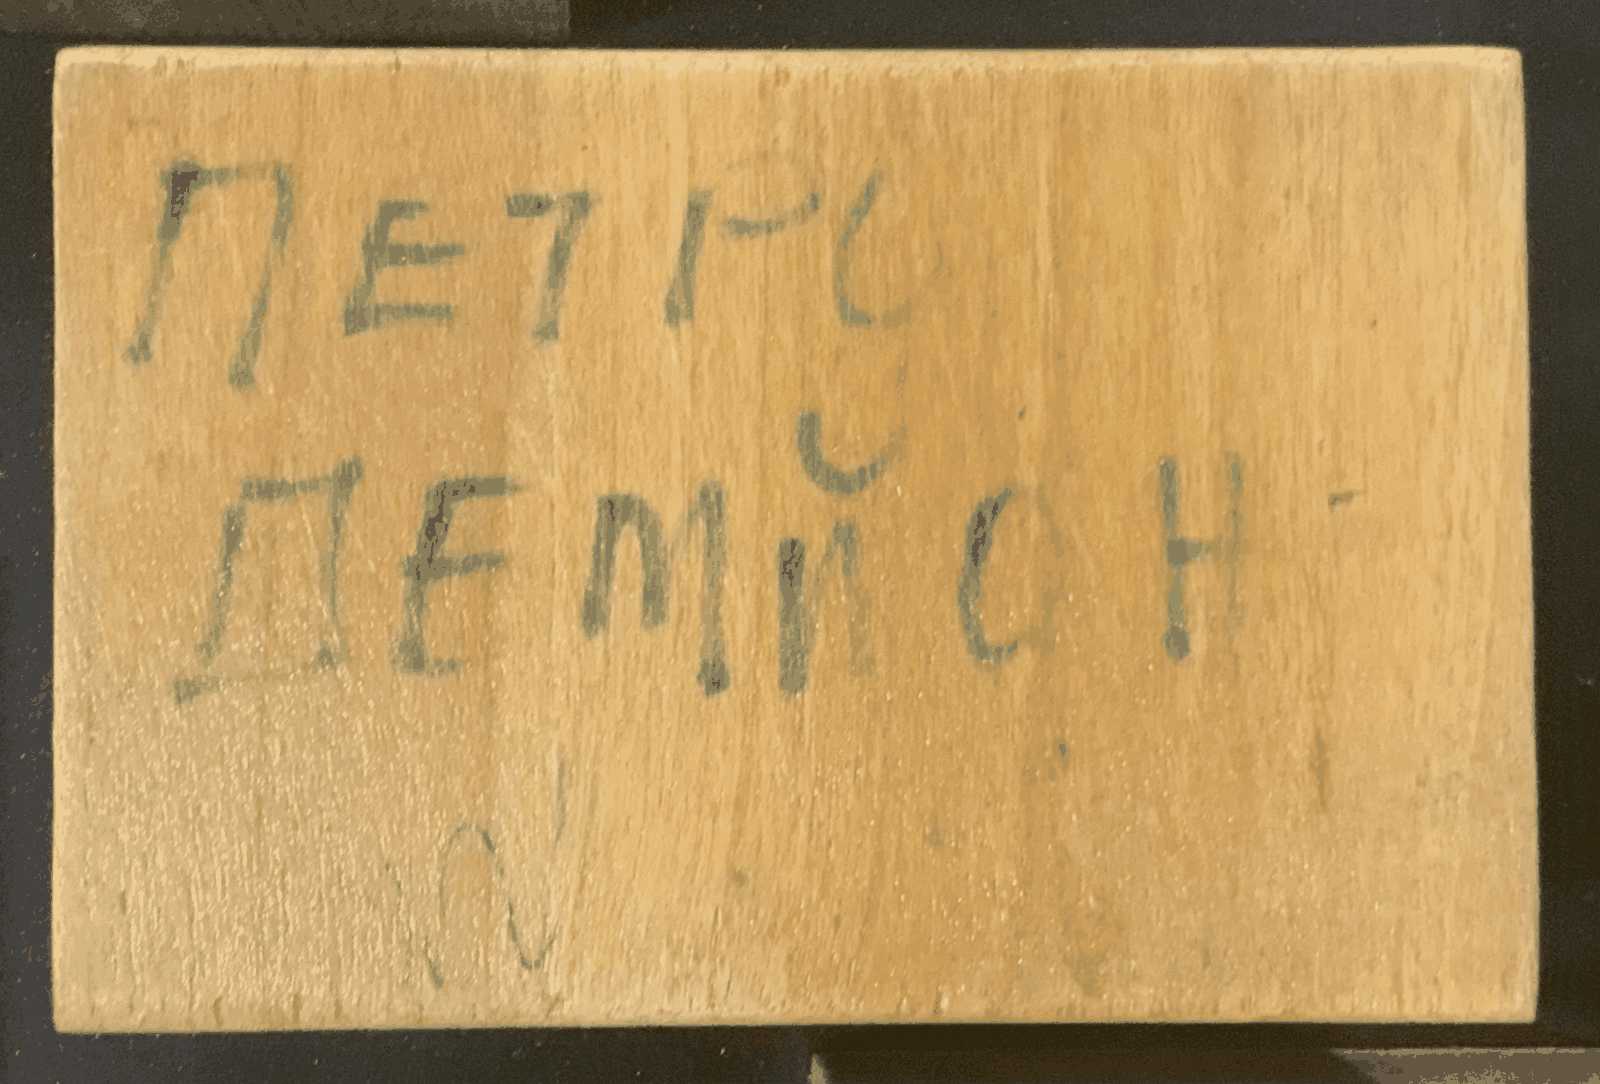 ПЕТРО
ДЕМЙОН